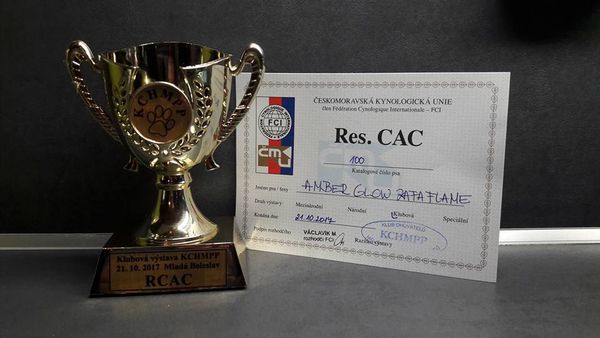 KCHMPP
Klubová výstava KCHMPP
21. 10. 2017 Mladá Boleslav
RCAC
ČESKOMORAVSKÁ KYNOLOGICKÁ UNIE
člen Fédération Cynologique Internationale – FCI
FCI
Res. CAC
100
Katalogové číslo psa
Jméno psa / feny AMBER GLOW RAFA FLAME
Druh výstavy: Mezinárodní Národní Klubová Speciální
Konána dne 21.10.2017
Podpis rozhodčího VÁCLAVÍK M. Razítko výstavy
rozhodčí FCI
KLUB CHOVATELŮ
KCHMPP